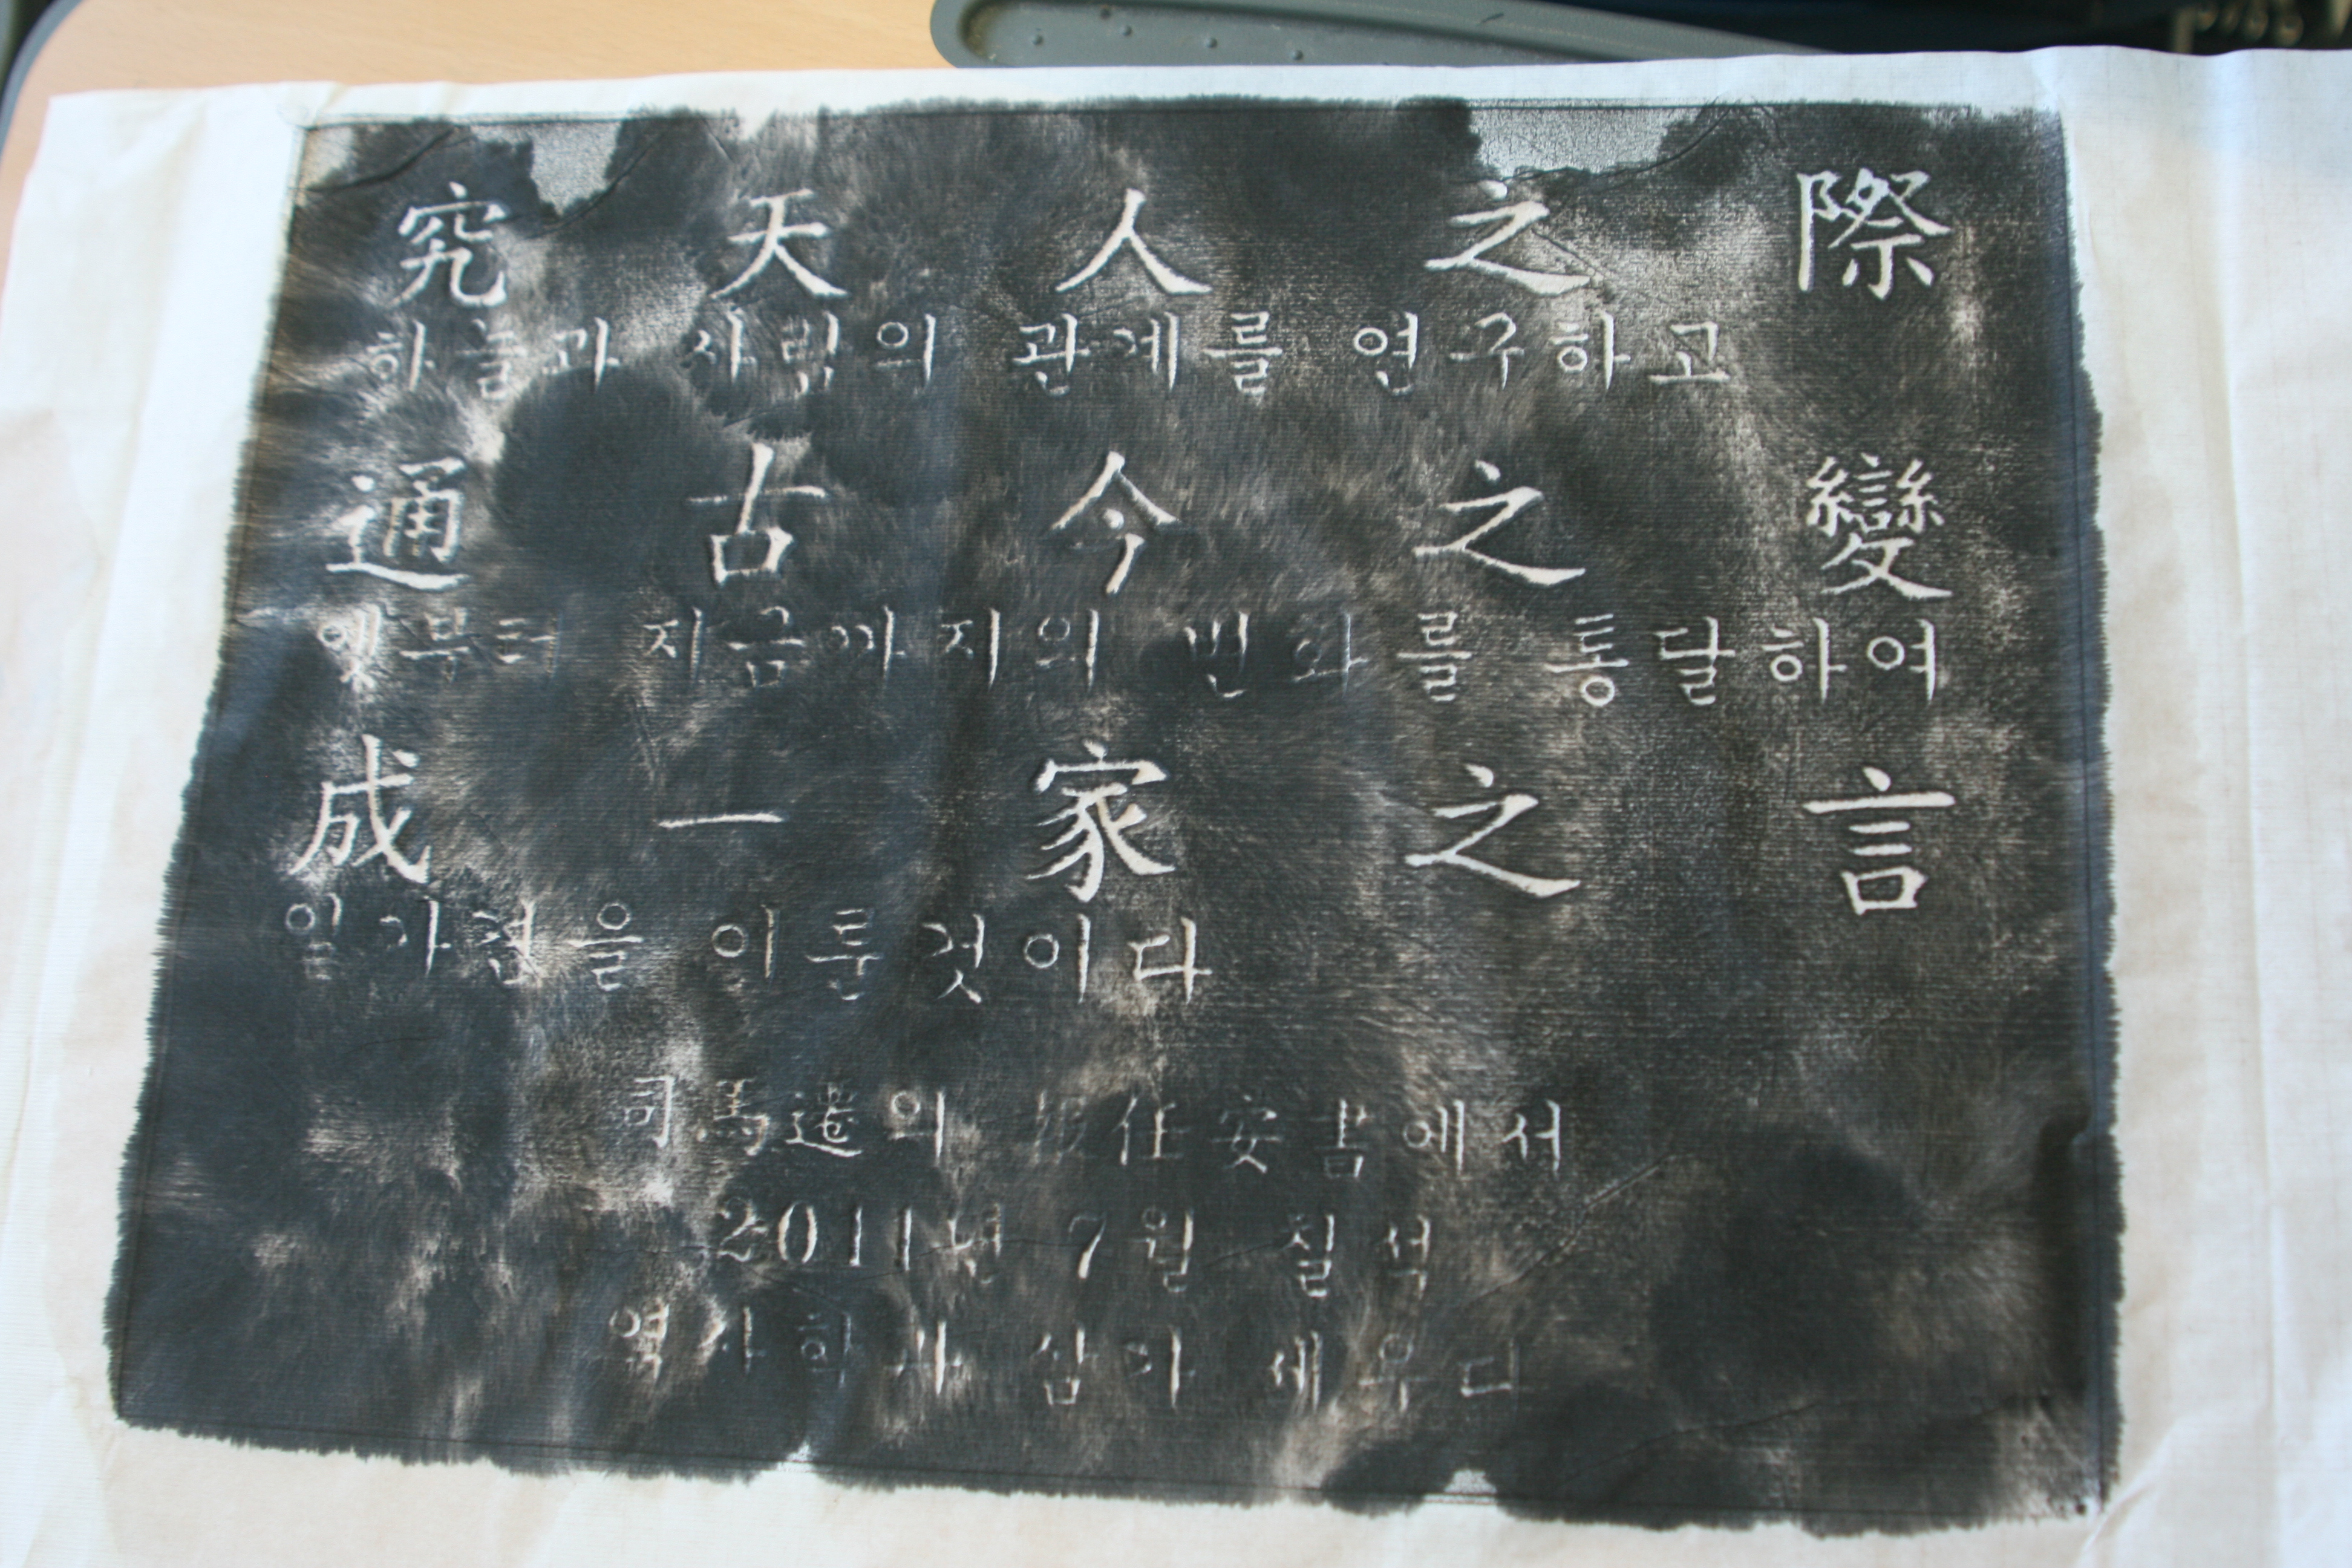 究天人之際
하늘과 사람의 관계를 연구하고
通古今之變
옛부터 지금까지의 변화를 통달하여
成一家之言
이룬것이다
司馬遷의 報任安書에서
2011년 7월 칠석
삼가 세우다